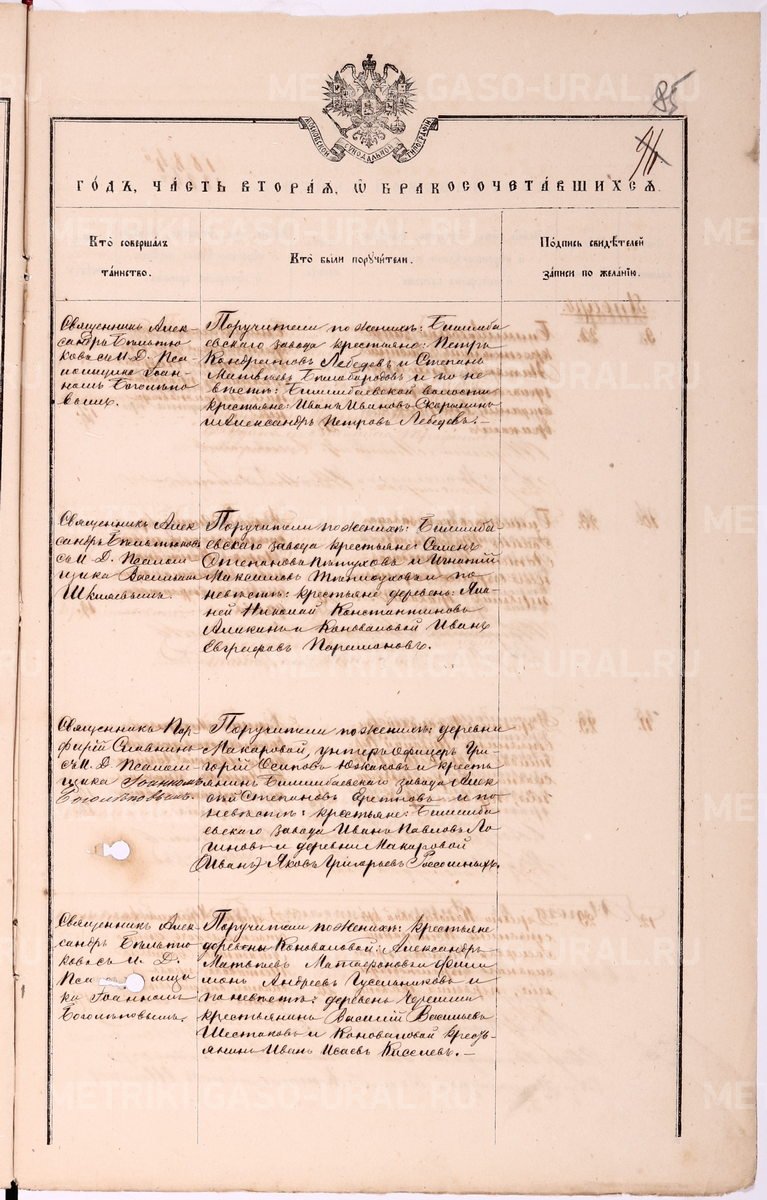 METRIKI.GASO-URAL.RU
85
МОСКОВСКОЙ СѴНОДАЛЬНОЙ ТИПОГРАФІИ
ГО́ДЪ, ЧА́СТЬ ВТОРА́Я, Ѿ БРАКОСОЧЕТА́ВШИХСЯ.
Кто̀ соверша́лъ
та́инство.
Кто̀ бы́ли пору́чители.
По́дпись свидѣ́телей
за́писи по жела́нію.
Священникъ Алек-
сандръ
съ И. Д. Пса-
ломщика Іоан-
номъ Боголѣпо-
вымъ.
Поручители по женихѣ: Билимба
евскаго завода крестьяне: Петръ
Кондратовъ Лебедевъ и Степанъ
Матвѣевъ Бѣлобородовъ и по не
вѣстѣ: Билимбаевской волости
крестьяне: Иванъ Ивановъ
и Александръ Петровъ Лебедевъ.-
Священникъ Алек
сандръ
съ И. Д. Псалом-
щика Василіемъ
Поручители по женихѣ: Билимба
евскаго завода крестьяне: Семенъ
Степановъ Пѣтуховъ и Игнатій
Максимовъ и по
невѣстѣ: крестьяне деревень:
Николай Константиновъ
и Коноваловой Иванъ
Евграфовъ Парамоновъ.
Священникъ Пор-
фирій Славнинъ
съ И. Д. Псалом-
щика Іоанномъ
Боголѣповымъ.
Поручители по женихѣ: деревни
Макаровой, унтеръ Офицеръ Гри-
горій Осиповъ Южаковъ и кресть
янинъ Билимбаевскаго завода Алек
сѣй Степановъ и по
невѣстѣ: крестьяне: Билимба
евскаго завода Иванъ Павловъ Ло
гиновъ и деревни Макаровой
(Иванъ) Яковъ Григорьевъ Россошныхъ.
Священникъ Алек
сандръ
съ И. Д.
Псаломщи
ка Іоанномъ
Боголѣповымъ.
Поручители по женихѣ: крестьяне
деревни Коноваловой: Александръ
Матвѣевъ и Фили
монъ Андреевъ Гусельниковъ и
по невѣстѣ: деревень Черемши
крестьянинъ Василій Васильевъ
Шестаковъ и Коноваловой крестъ-
янинъ Иванъ Исаевъ Киселевъ.-